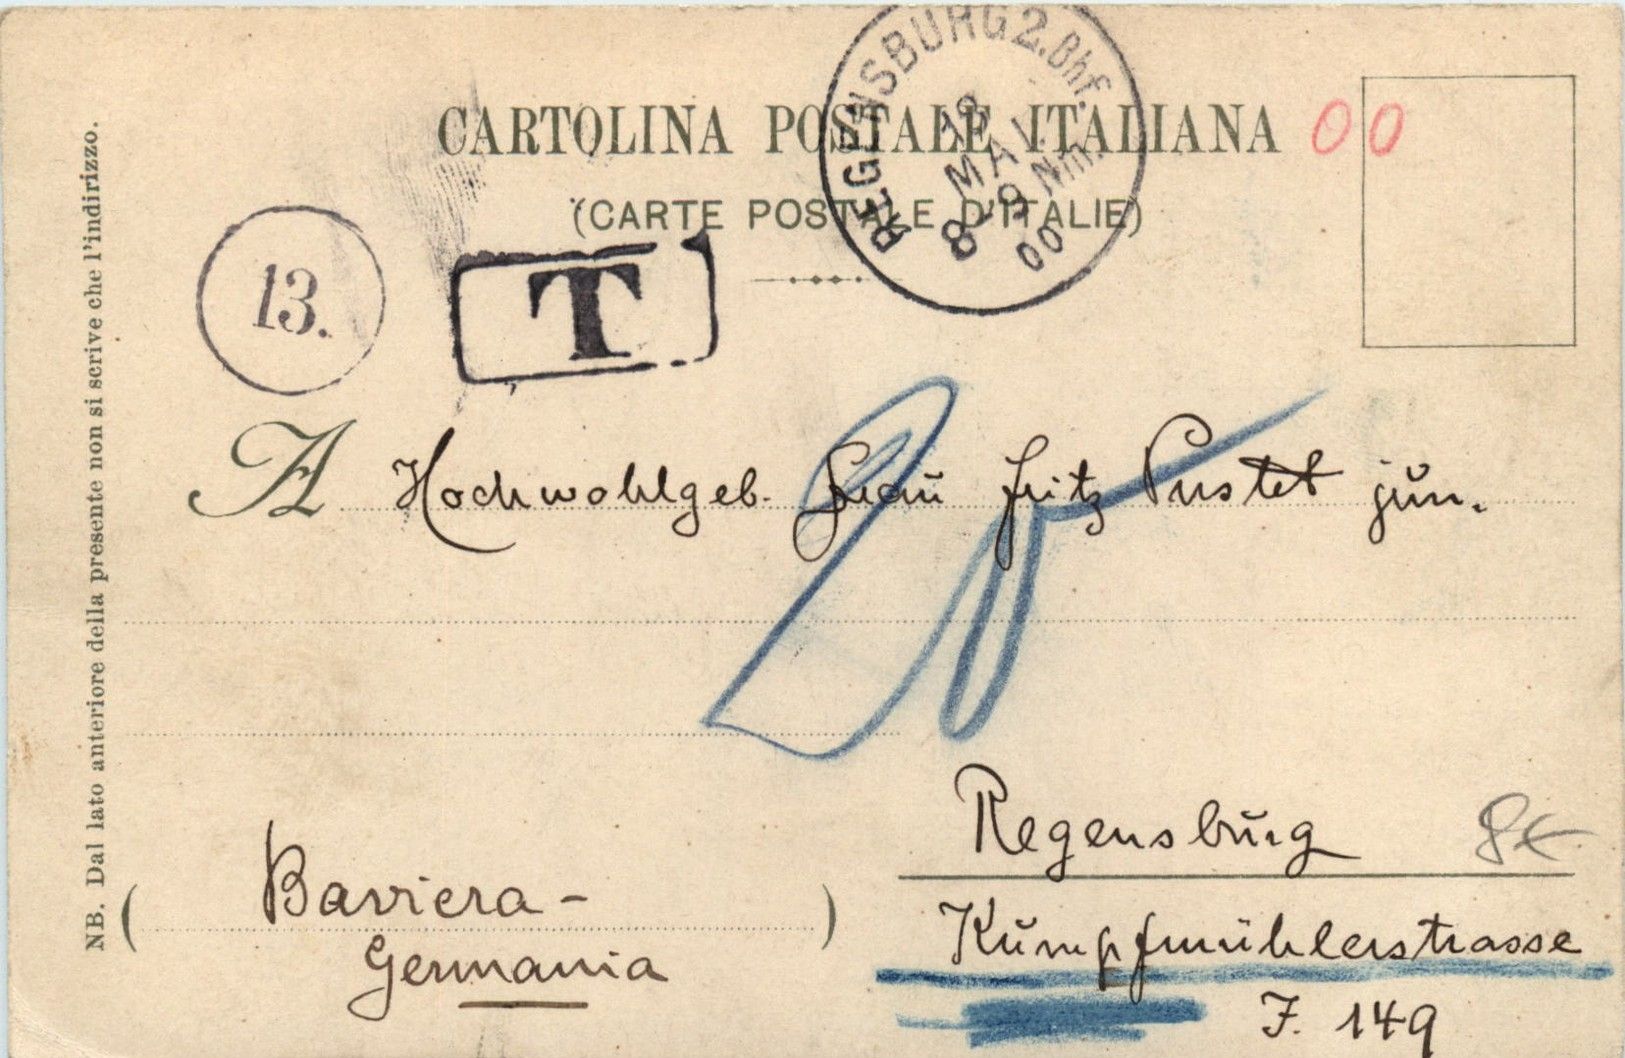 CARTOLINA POSTALE ITALIANA 00
(CARTE POSTALE D'ITALIE)
REGENSBURG 2. Bhf.
MAI
8-9 Nm.
00
13.
T
A Hochwohlgeb. Frau Fritz Pustet jun.
20
Regensburg
Kumpfmühlerstrasse
J. 149
(Baviera-)
Germania
NB. Dal lato anteriore della presente non si scrive che l'indirizzo.